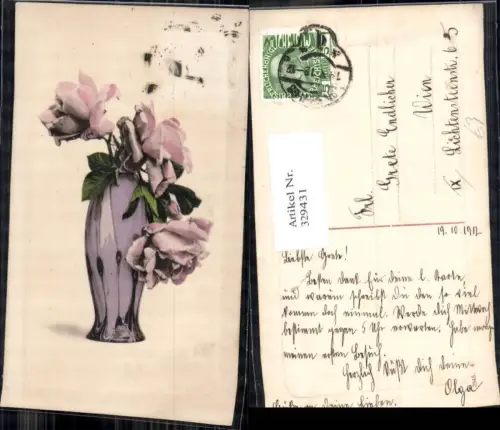 Artikel Nr.
329431
Frl.
Grete Endlicher
Wien
IX Lichtensteinstr. 6-5
63
19.10.1912
Liebste Grete!
Besten Dank für deine l. Karte,
und warum schreibst Du den so viel
kommen doch einmal. Werde dich Mittwoch
bestimmt gegen 5 Uhr erwarten. Habe
meinen ersten Besuch.
Herzlich küßt dich deine
Olga
deine Lieben.